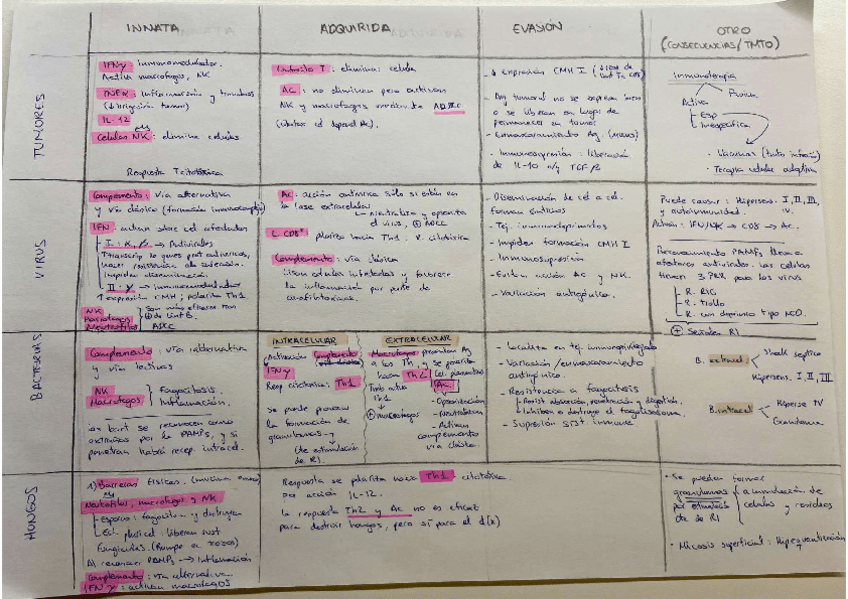 INNATA
ADQUIRIDA
EVASIÓN
OTRO
(CONSECUENCIAS/TMTO)
TUMORES
IFNγ inmunomodulador.
Activa macrófagos, NK
TNFα: Inflamación y
(↓irrigación tumor)
IL-12
Células NK: elimina células
Respuesta Tcitotóxica
Linfocito T: elimina célula
AC: no eliminan pero activan
NK y macrófagos mediante ADCC
(citotox cel depend Ac).
↓ expresión CMH I
Ag tumoral no se expresan
o se liberan en lugar de
permanecer en tumor
Enmascaramiento Ag
Inmunosupresión: liberación
de IL-10 o/y TGF-β
Inmunoterapia
Activa
Pasiva
Esp
Inespecífica
Vacunas
Terapia celular adoptiva
VIRUS
Complemento: vía alternativa
y vía clásica (formación inmunocomplejo)
IFN: actúan sobre cel afectadas
I: α, β → Antivirales
II: γ → Inmunomodulador
↑ expresión CMH, polariza Th1
NK
Macrófagos
Neutrófilos
ADCC
Ac: acción antivírica sólo si están en
la fase extracelular
Neutraliza y opsoniza
el virus, ⊕ ADCC
L. CD8+ polariza hacia Th1: R. citotóxica
Complemento: vía clásica
Lisan células infectadas y favorece
la inflamación por parte de
anafilotoxinas.
Diseminación de cel a cel.
forman sincitios
Tej. inmunoprivilegiados
Impiden formación CMH I
Inmunosupresión
Evitan acción AC y NK.
Variación antigénica.
Puede causar: Hipersens. I, II, III,
IV.
y autoinmunidad.
Activan: IFN/NK → CD8 → Ac.
Reconocimiento PAMPs lleva a
efectores antivirales. Las células
tienen 3 PRR para los virus
R. RIG
R. Trollo
R. con dominio tipo NOD.
⊕ Señalen RI
BACTERIAS
Complemento: vía alternativa
y vía lectinas
NK
Macrófagos
Fagocitosis.
Inflamación.
Las bact se reconocen como
extrañas por la PAMPs, y si
penetran habrá recep. intracel.
INTRACELULAR
Activación complemento
IFNγ
Resp citotóxica: Th1
⊕ macrófagos
Se puede provocar
la formación de
granulomas
cte estimulación
de RI.
EXTRACELULAR
Macrófagos presentan Ag
a los Th, y se polariza
hacia Th2
Ac
Opsonización
Neutralizan
Activan
complemento
vía clásica.
Localiza en tej. inmunoprivilegiado
Variación/enmascaramiento
antigénico.
Resistencia a fagocitosis
Resist absorción, penetración y digestión.
Inhiben o destruye el fagolisosoma.
Supresión sist inmune
B. extracel
Shock séptico
Hipersens. I, II, III
B. intracel
Hiperse IV
Granuloma
HONGOS
1) Barreras físicas.
Neutrófilos, macrófagos y NK
Esporas: fagocitan y destruyen
Cel. pluricel: liberan sust
fungicidas.
Al reconocer PAMPs → Inflamación
Complemento: vía alternativa
IFNγ: activan macrófagos
Respuesta se polariza hacia Th1 citotóxica
por acción IL-12.
La respuesta Th2 y Ac no es eficaz
para destruir hongos, pero sí para el d(x)
Se pueden formar
granulomas
por estimulación
cte de RI
acumulación de
células y residuos
Micosis superficial: Hiperqueratinización